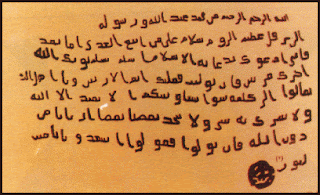 بسم الله الرحمن الرحيم من محمد عبد الله ورسوله
الى هرقل عظيم الروم سلام على من اتبع الهدى اما بعد
فانى ادعوك بدعاية الاسلام اسلم تسلم يوتك الله
اجرك مرتين فان توليت فعليك اثم ويا اهل
تعالوا الى كلمة سوا بيننا وبينكم الا نعبد الا الله
ولا نشرك به ولا يتخذ بعضنا بعضا اربابا من
دون الله فان تولوا فقولوا اشهدوا بانا مس
لمون